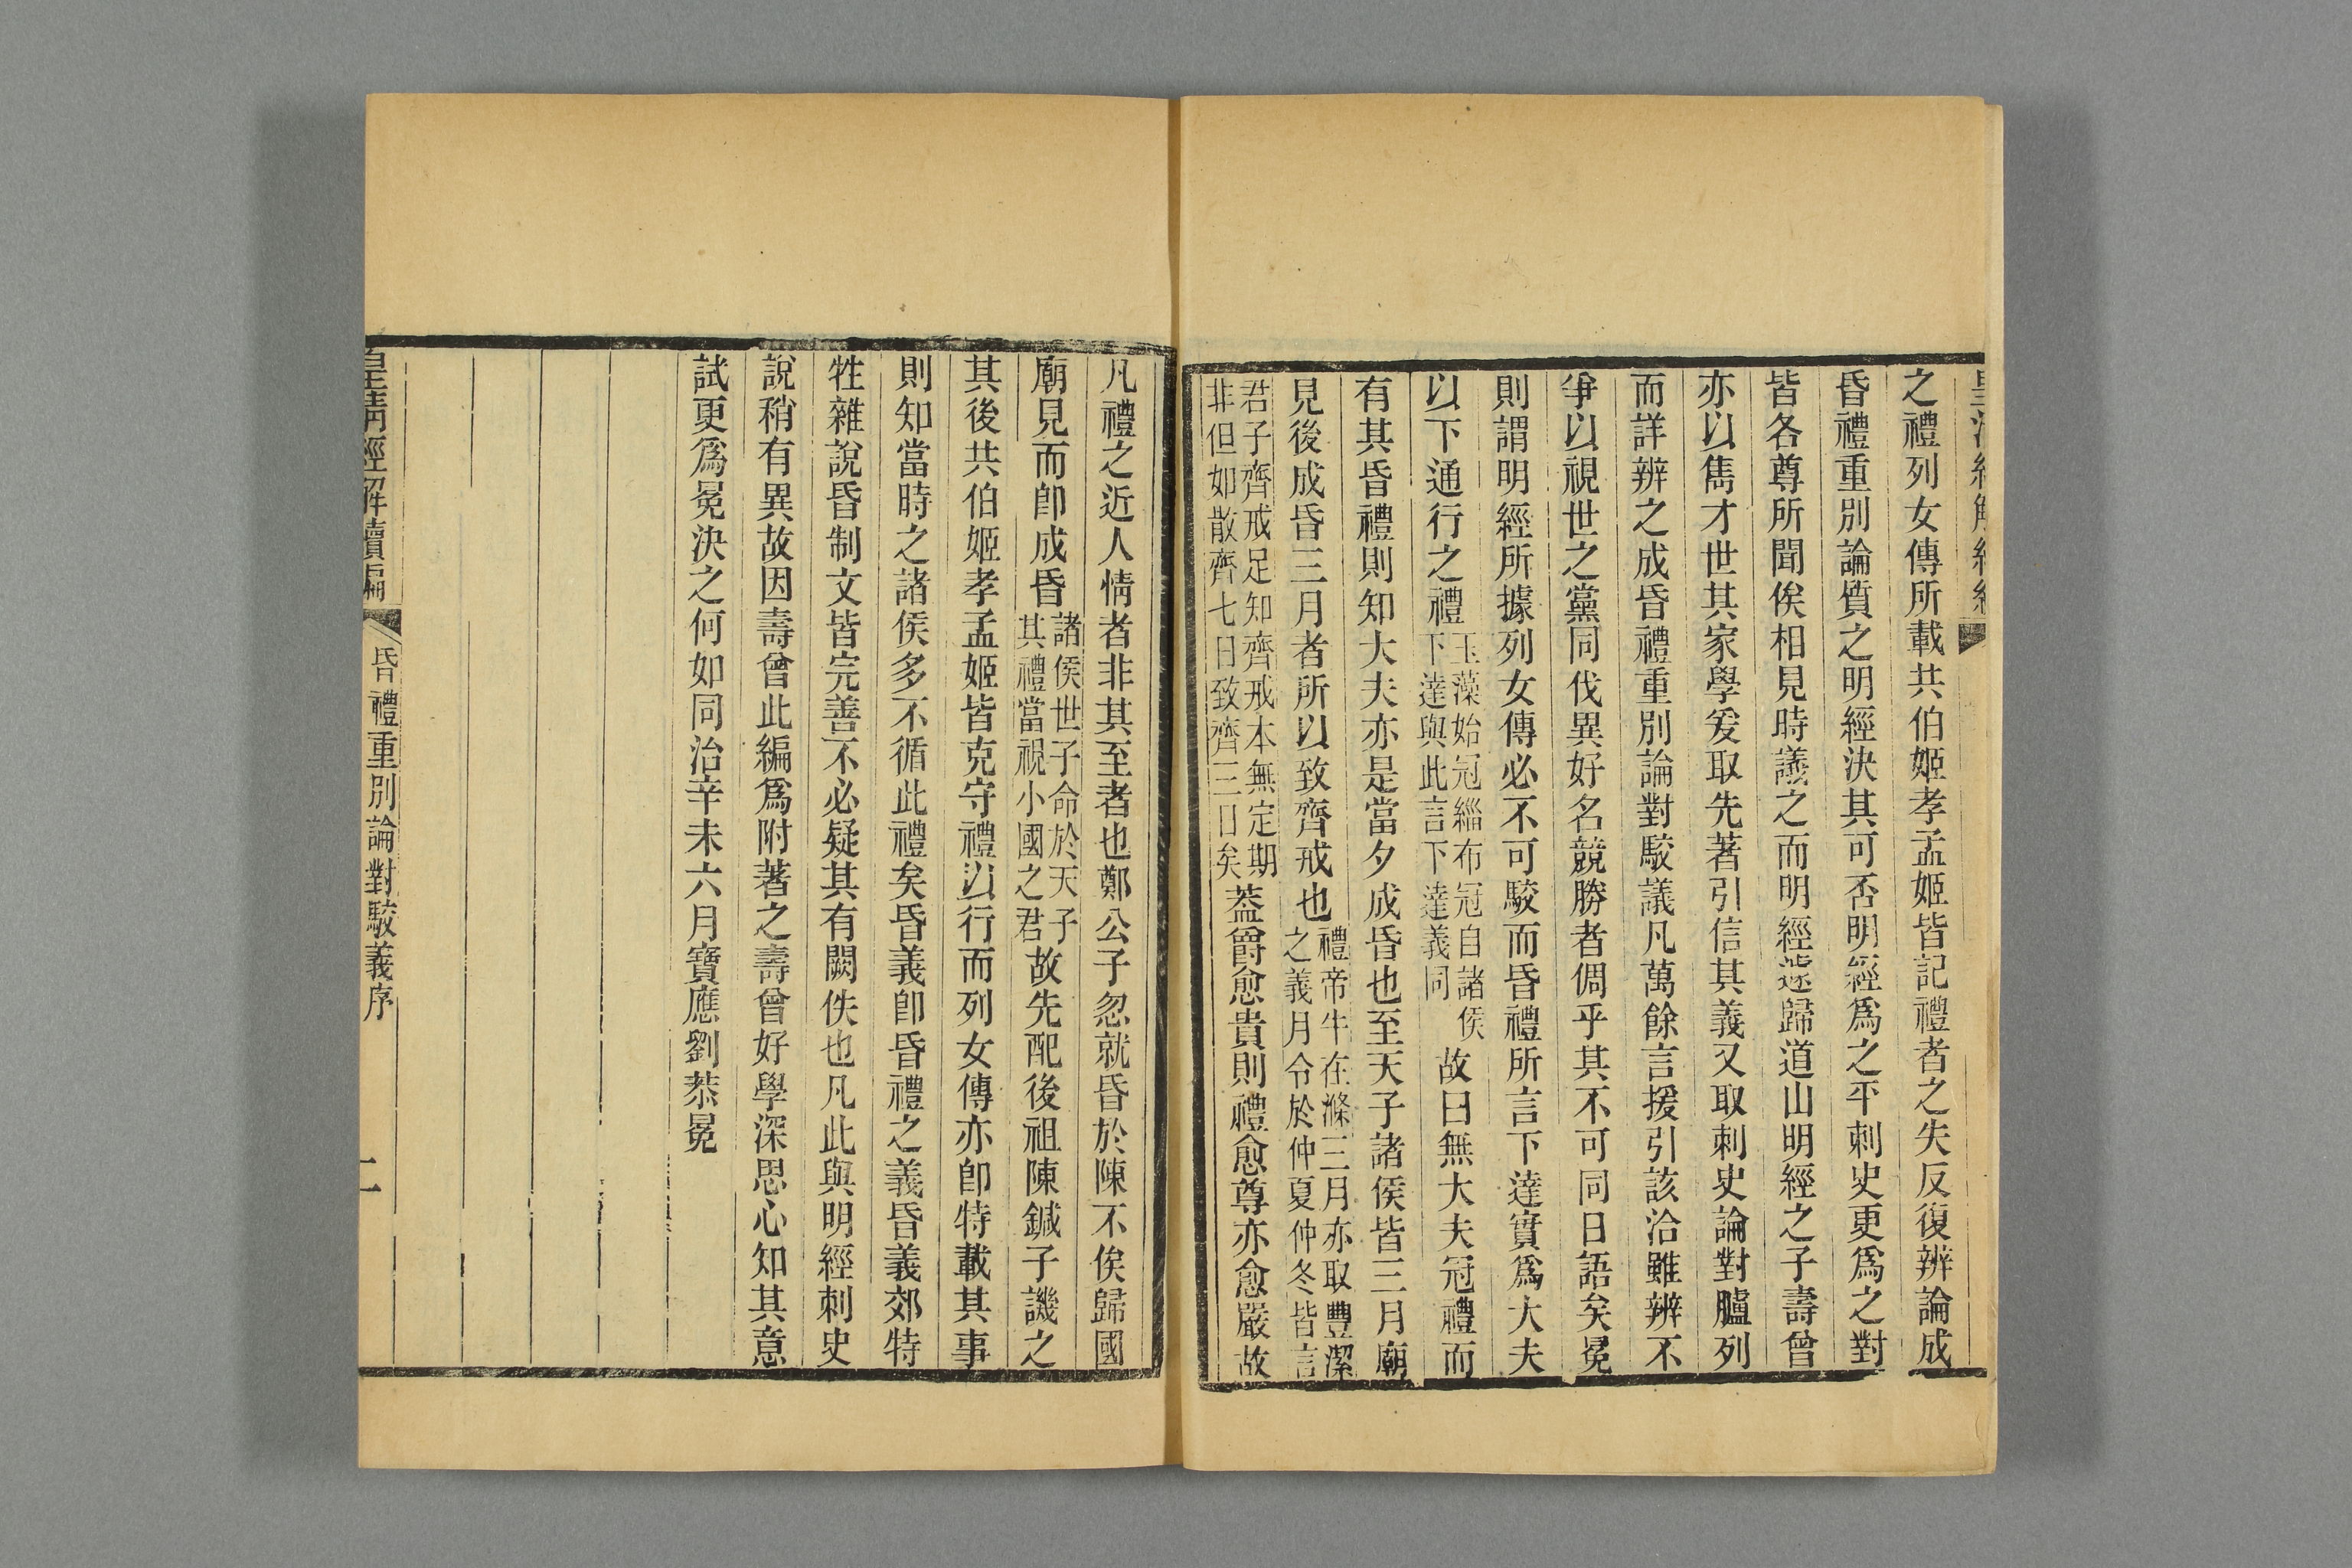 之禮列女傳所載共伯姬孝孟姬皆記禮者之失反復辨論成
昏禮重別論質之明經決其可否明經爲之平刺史更爲之對
皆各尊所聞俟相見時議之而明經遽歸道山明經之子壽曾
亦以雋才世其家學爰取先著引信其義又取刺史論對臚列
而詳辨之成昏禮重別論對駮議凡萬餘言援引該洽雖辨不
爭以視世之黨同伐異好名競勝者倜乎其不可同日語矣冕
則謂明經所據列女傳必不可駮而昏禮所言下達實爲大夫
以下通行之禮玉藻始冠緇布冠自諸侯下達與此言下達義同故曰無大夫冠禮而
有其昏禮則知大夫亦是當夕成昏也至天子諸侯皆三月廟
見後成昏三月者所以致齊戒也禮帝牛在滌三月亦取豐潔之義月令於仲夏仲冬皆言
君子齊戒足知齊戒本無定期非但如散齊七日致齊三日矣葢爵愈貴則禮愈尊亦愈嚴故
凡禮之近人情者非其至者也鄭公子忽就昏於陳不俟歸國
廟見而卽成昏諸侯世子命於天子其禮當視小國之君故先配後祖陳鍼子譏之
其後共伯姬孝孟姬皆克守禮以行而列女傳亦卽特載其事
則知當時之諸侯多不循此禮矣昏義卽昏禮之義昏義郊特
牲雜說昏制文皆完善不必疑其有闕佚也凡此與明經刺史
說稍有異故因壽曾此編爲附著之壽曾好學深思心知其意
試更爲冕決之何如同治辛未六月寶應劉恭冕
皇清經解續編
昏禮重別論對駮義序
二